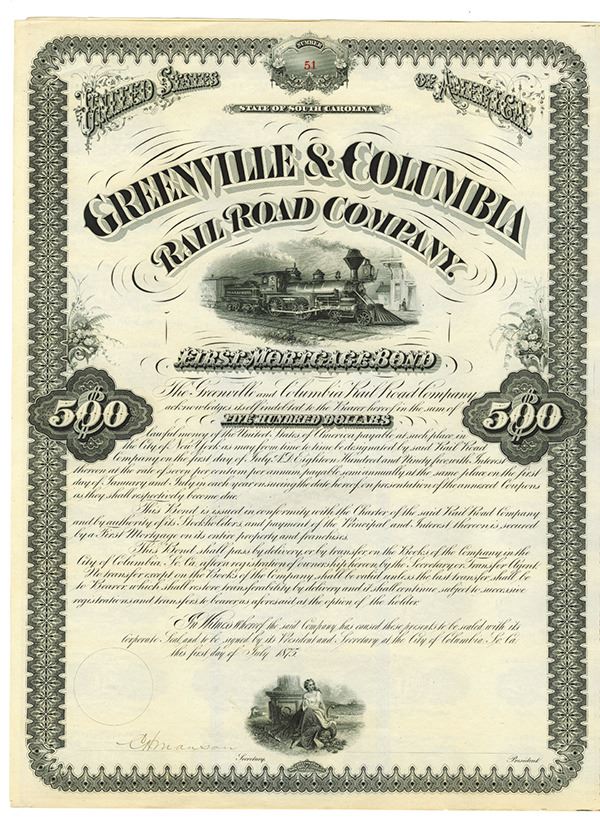 NUMBER
51
UNITED STATES OF AMERICA.
STATE OF SOUTH CAROLINA
GREENVILLE & COLUMBIA
RAIL ROAD COMPANY.
FIRST MORTGAGE BOND
The Greenville and Columbia Rail Road Company
acknowledges itself indebted to the Bearer hereof in the sum of
$500 FIVE HUNDRED DOLLARS $500
Lawful money of the United States of America, payable at such place, in
the City of New York as may from time to time be designated by said Rail Road
Company on the first day of July A.D. Eighteen Hundred and Ninety five, with Interest
thereon at the rate of seven per centum per annum, payable semiannually at the same place on the first
day of January and July in each year ensuing the date hereof on presentation of the annexed Coupons
as they shall respectively become due.
This Bond is issued in conformity with the Charter of the said Rail Road Company
and by authority of its Stockholders, and payment of the Principal and Interest thereon is secured
by a First Mortgage on its entire property and franchises.
This Bond shall pass by delivery, or by transfer on the Books of the Company in the
City of Columbia, So. Ca. after a registration of ownership hereon by the Secretary or Transfer Agent.
No transfer except on the Books of the Company, shall be valid unless the last transfer shall be
to Bearer, which shall restore transferability by delivery and it shall continue subject to successive
registrations and transfers to bearer as aforesaid at the option of the holder.
In Witness Whereof the said Company has caused these presents to be sealed with its
corporate Seal, and to be signed by its President and Secretary at the City of Columbia So. Ca.
this first day of July 1875
Secretary.
President